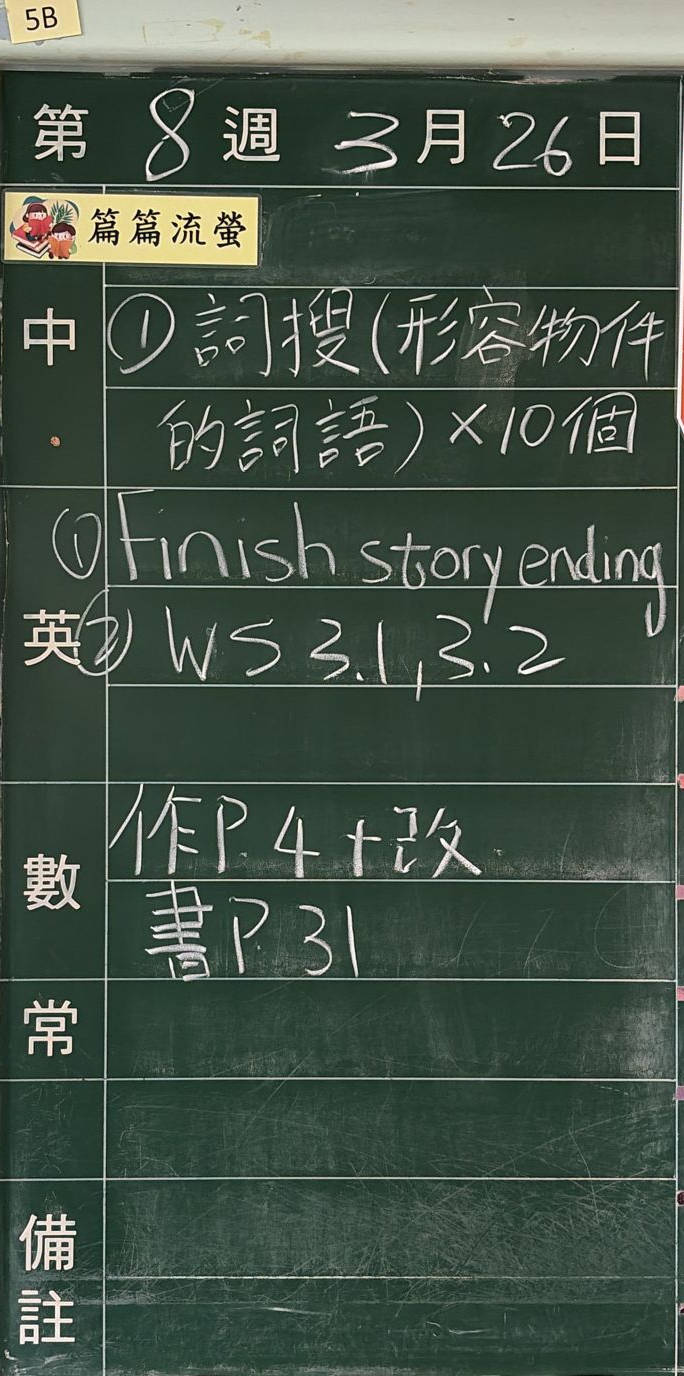 5B
第 8 週 3 月 26 日
篇篇流螢
中 ① 詞搜(形容物件
的詞語)×10個
① Finish story ending
英 ② WS 3.1, 3.2
數
作P.4+改
書P.31
常
備註